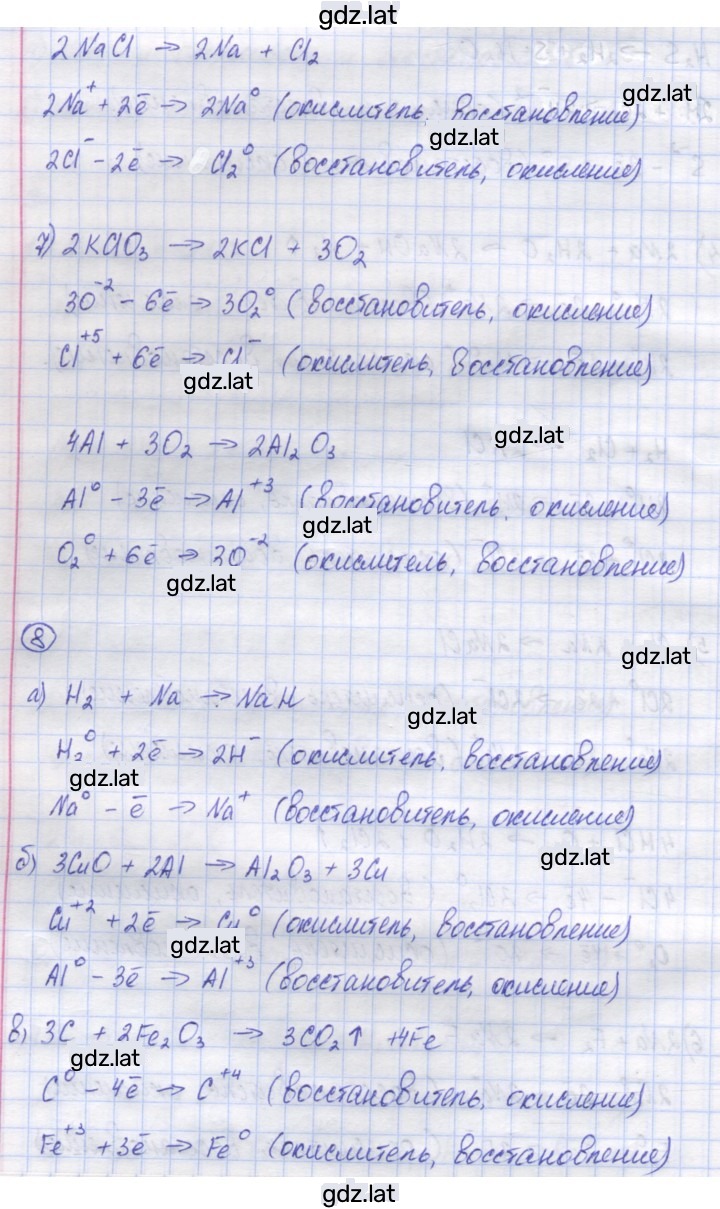 gdz.lat
2NaCl → 2Na + Cl₂
gdz.lat
2Na⁺ + 2ē → 2Na⁰ (окислитель, восстановление)
gdz.lat
2Cl⁻ - 2ē → Cl₂⁰ (восстановитель, окисление)
7) 2KClO₃ → 2KCl + 3O₂
3O⁻² - 6ē → 3O₂⁰ (восстановитель, окисление)
Cl⁺⁵ + 6ē → Cl⁻ (окислитель, восстановление)
gdz.lat
4Al + 3O₂ → 2Al₂O₃
gdz.lat
Al⁰ - 3ē → Al⁺³ (восстановитель, окисление)
gdz.lat
O₂⁰ + 6ē → 3O⁻² (окислитель, восстановление)
gdz.lat
8
gdz.lat
а) H₂ + Na → NaH
gdz.lat
H₂⁰ + 2ē → 2H⁻ (окислитель, восстановление)
gdz.lat
Na⁰ - ē → Na⁺ (восстановитель, окисление)
б) 3CuO + 2Al → Al₂O₃ + 3Cu
gdz.lat
Cu⁺² + 2ē → Cu⁰ (окислитель, восстановление)
gdz.lat
Al⁰ - 3ē → Al⁺³ (восстановитель, окисление)
в) 3C + 2Fe₂O₃ → 3CO₂↑ + 4Fe
gdz.lat
C⁰ - 4ē → C⁺⁴ (восстановитель, окисление)
Fe⁺³ + 3ē → Fe⁰ (окислитель, восстановление)
gdz.lat